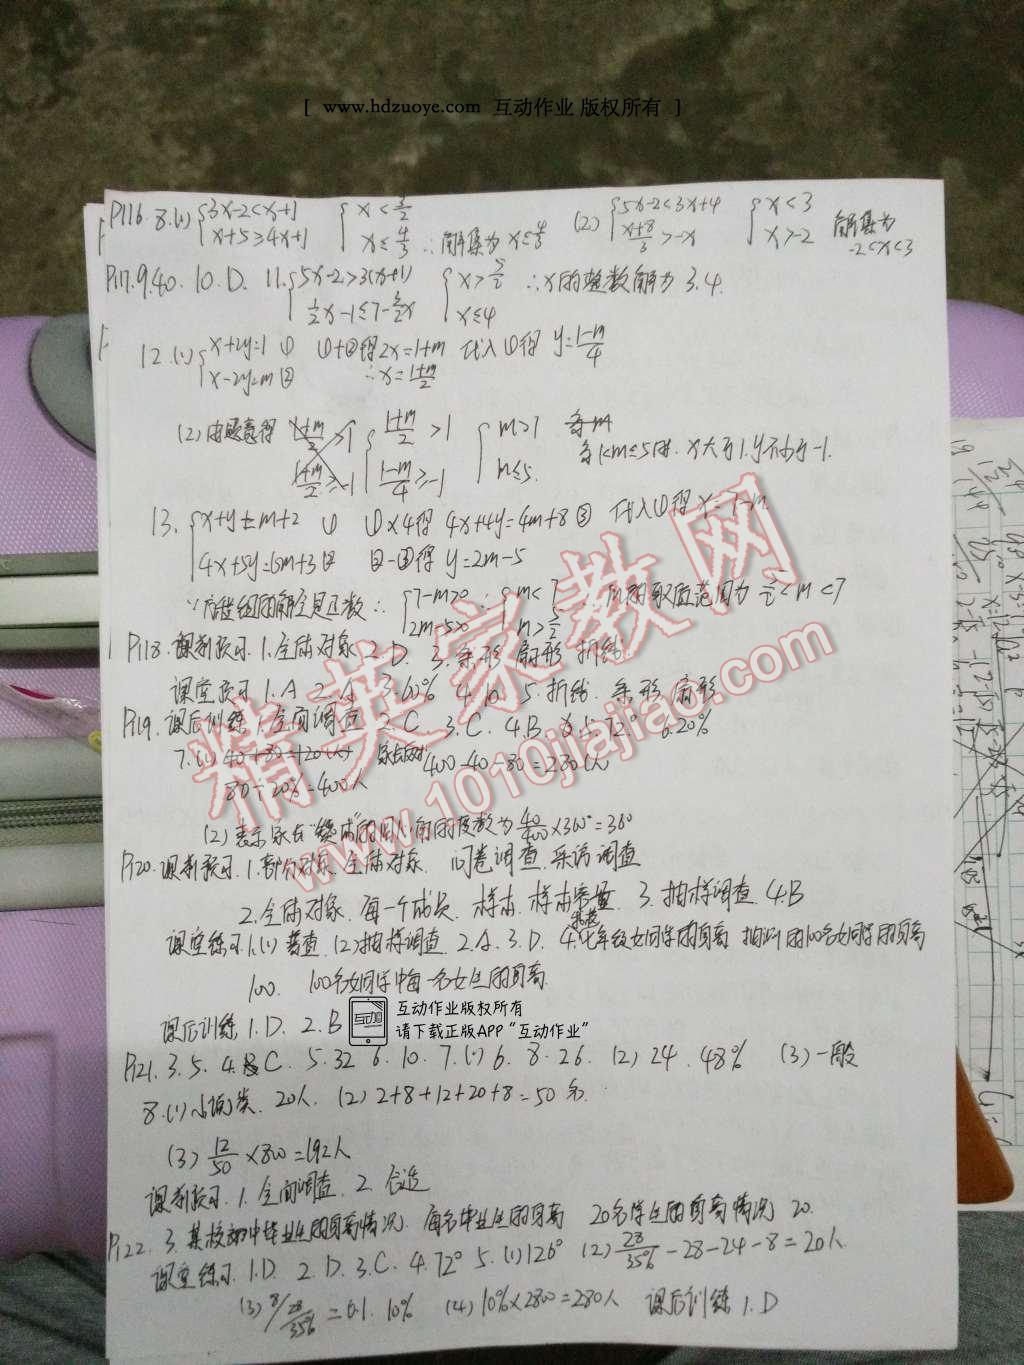 [ www.hdzuoye.com 互动作业 版权所有 ]
P116. 8.(1) {3x-2<x+1 {x<3/2 (2) {5x-2<3x+4 {x<3 解集为
x+5≥4x+1 x≤4/3 ∴解集为x≤4/3 (x+8)/3>-x x>-2 -2<x<3
P117. 9. 40. 10. D. 11. {5x-2>3(x+1) {x>5/2 ∴x的整数解为 3.4.
1/2x-1≤7-3/2x x≤4
12.(1) {x+2y=1 ① ①+②得2x=1+m 代入①得 y=(1-m)/4
x-2y=m ② ∴x=(1+m)/2
(2)由题意得 {(1+m)/2>1 {m>1
(1-m)/4≥-1 m≤5.
当1<m≤5时. x大于1. y不小于-1.
13. {x+y=m+2 ① ①×4得 4x+4y=4m+8 ③ 代入①得 x=7-m
4x+5y=6m+3 ② ②-③得 y=2m-5
∵方程组的解是正数 ∴ {7-m>0 ∴ {m<7 m的取值范围为 5/2<m<7
2m-5>0 m>5/2
P118. 课前预习. 1. 全体对象 2. D. 3. 条形 扇形 折线
课堂练习 1. A 2. A 3. 60% 4. 10. 5. 折线. 条形 扇形
P119. 课后训练 1. 全面调查 2. C 3. C. 4. B 5. 72° 6. 20%
7.(1) 40+80=120(人)
80÷20%=400人 400-40-80=280(人)
(2) 表示家长"赞成"的圆心角的度数为 40/400×360°=36°
P120. 课前预习. 1. 部分对象 全体对象. 问卷调查 采访调查
2. 全体对象. 每一个成员. 样本. 样本容量. 3. 抽样调查 4. B
课堂练习 1.(1) 普查. (2) 抽样调查 2. A. 3. D. 4. 七年级女同学的身高 抽测的100名女同学的身高
100. 100名女同学中每一名女生的身高.
课后训练 1. D. 2. B
互动作业版权所有
请下载正版APP“互动作业”
P121. 3. 5. 4. C. 5. 32 6. 10. 7.(1) 6. 8. 26. (2) 24. 48% (3) 一般
8.(1) 小说类. 20人. (2) 2+8+12+20+8=50名.
(3) 12/50×800=192人
课前预习. 1. 全面调查. 2. 合适
P122. 3. 某校初中毕业生的身高情况. 每名毕业生的身高 20名学生的身高情况 20.
课堂练习. 1. D. 2. D. 3. C. 4. 72° 5.(1) 126° (2) 28/35%-28-24-8=20人
(3) 8/(28/35%)=0.1. 10% (4) 10%×2800=280人 课后训练 1. D
精英家教网
www.1010jiajiao.com